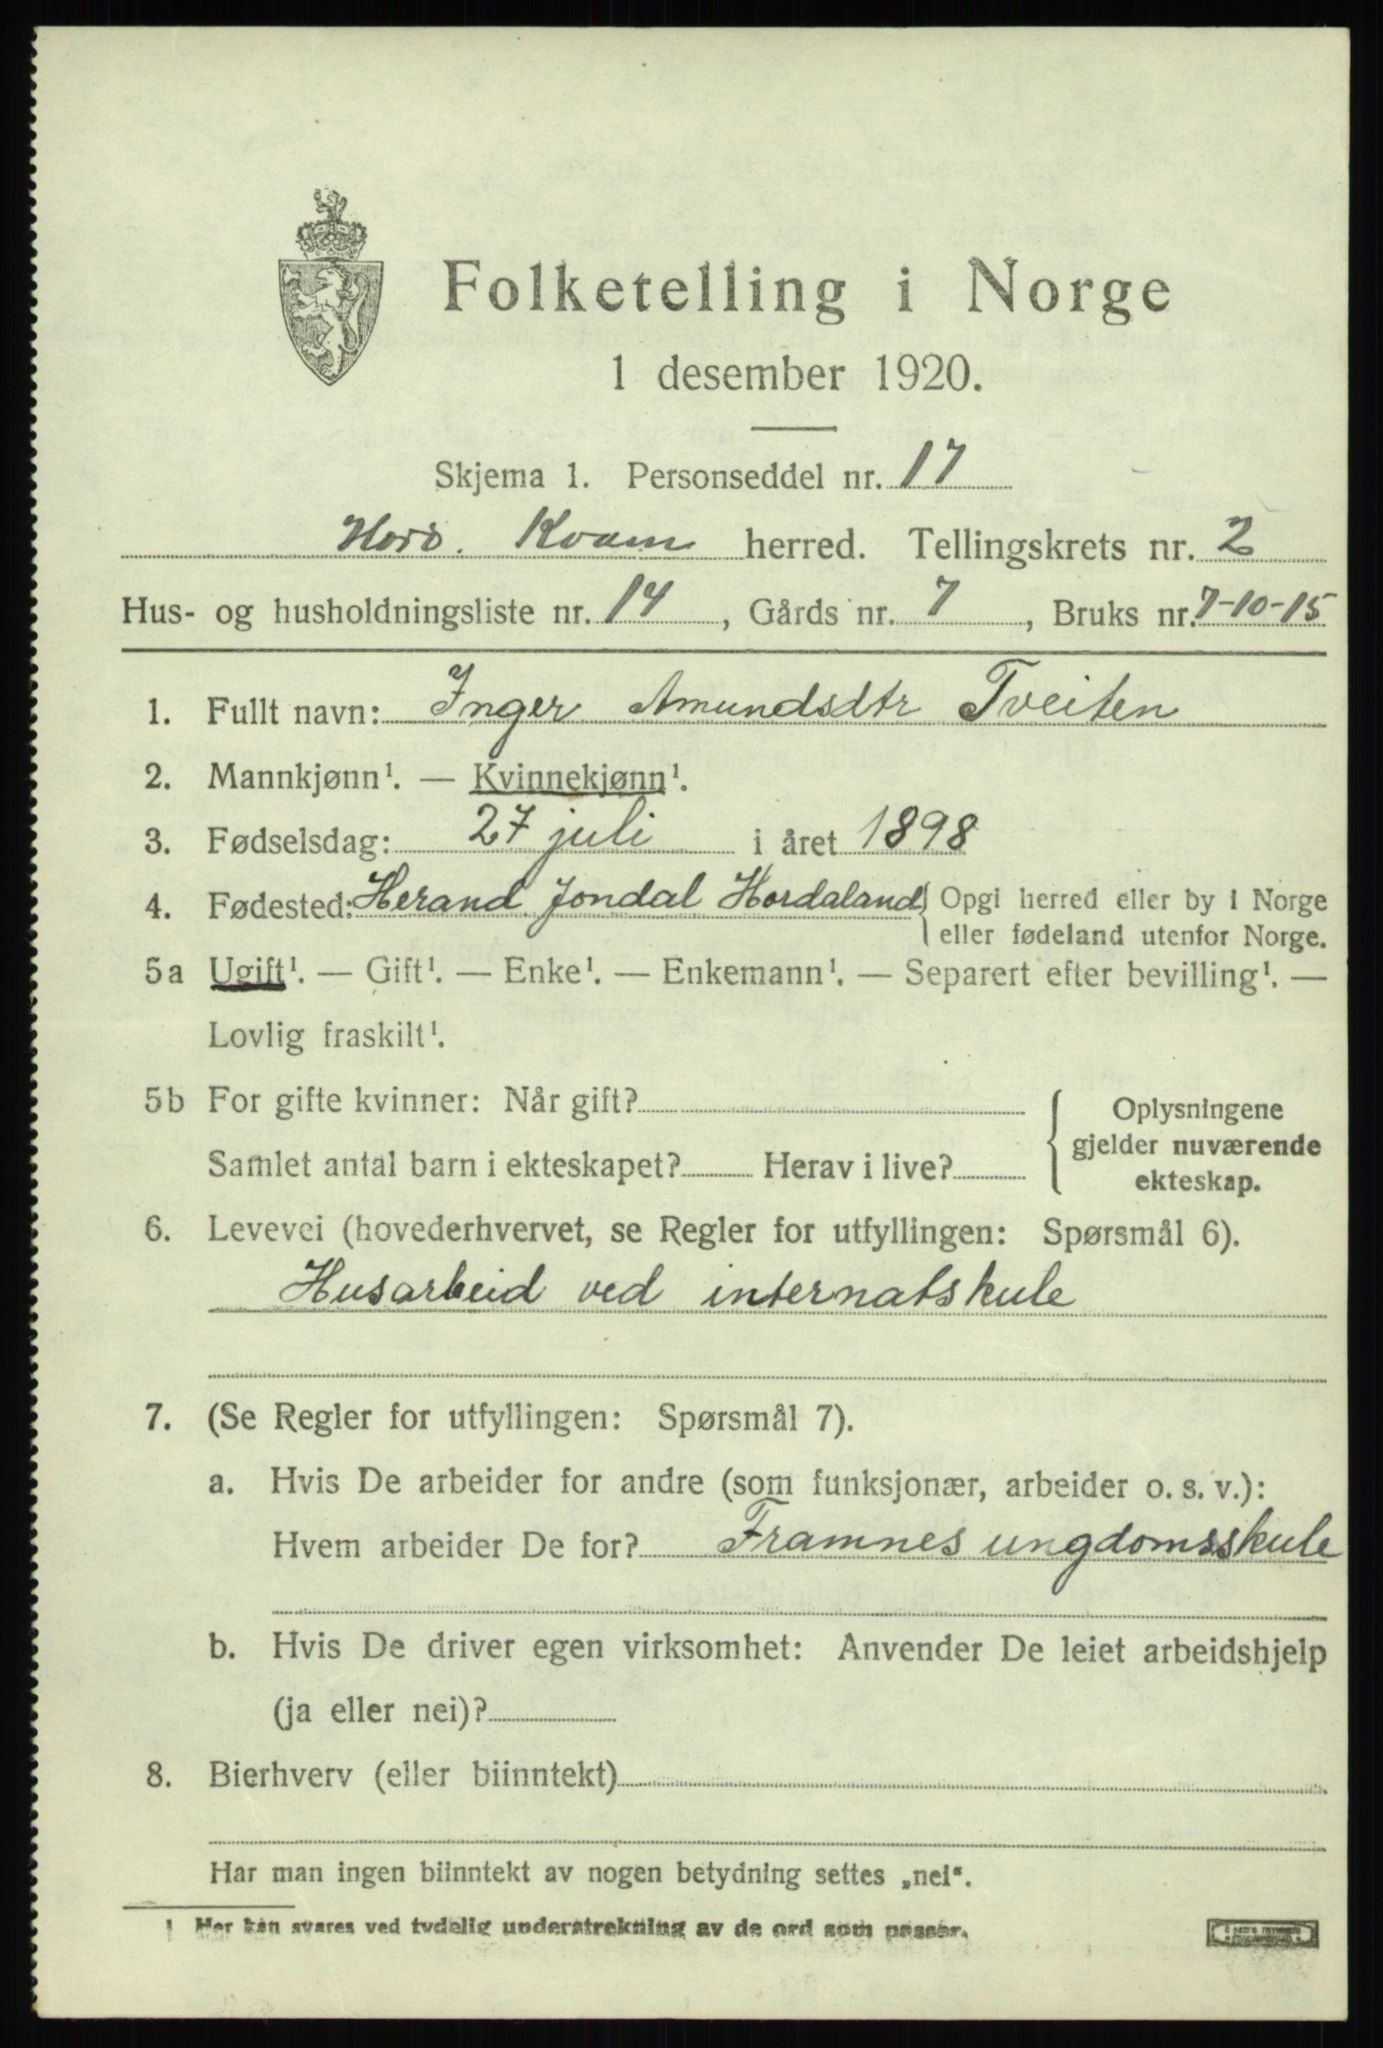 Folketelling i Norge
1 desember 1920.
Skjema 1. Personseddel nr. 17
Hero. Kvam herred. Tellingskrets nr. 2
Hus- og husholdningsliste nr. 14, Gårds nr. 7, Bruks nr. 7-10-15
1. Fullt navn: Inger Amundsdtr Tveiten
2. Mannkjønn¹. — Kvinnekjønn¹.
3. Fødselsdag: 27 juli i året 1898
4. Fødested: Herand Jondal Hordaland { Opgi herred eller by i Norge
eller fødeland utenfor Norge.
5a Ugift¹. — Gift¹. — Enke¹. — Enkemann¹. — Separert efter bevilling¹. —
Lovlig fraskilt¹.
5b For gifte kvinner: Når gift?
Samlet antal barn i ekteskapet? Herav i live?
Oplysningene
gjelder nuværende
ekteskap.
6. Levevei (hovederhvervet, se Regler for utfyllingen: Spørsmål 6).
Husarbeid ved internatskule
7. (Se Regler for utfyllingen: Spørsmål 7).
a. Hvis De arbeider for andre (som funksjonær, arbeider o. s. v.):
Hvem arbeider De for? Framnes ungdomsskule
b. Hvis De driver egen virksomhet: Anvender De leiet arbeidshjelp
(ja eller nei)?
8. Bierhverv (eller biinntekt)
Har man ingen biinntekt av nogen betydning settes „nei“.
1 Her kan svares ved tydelig understrekning av de ord som passer.